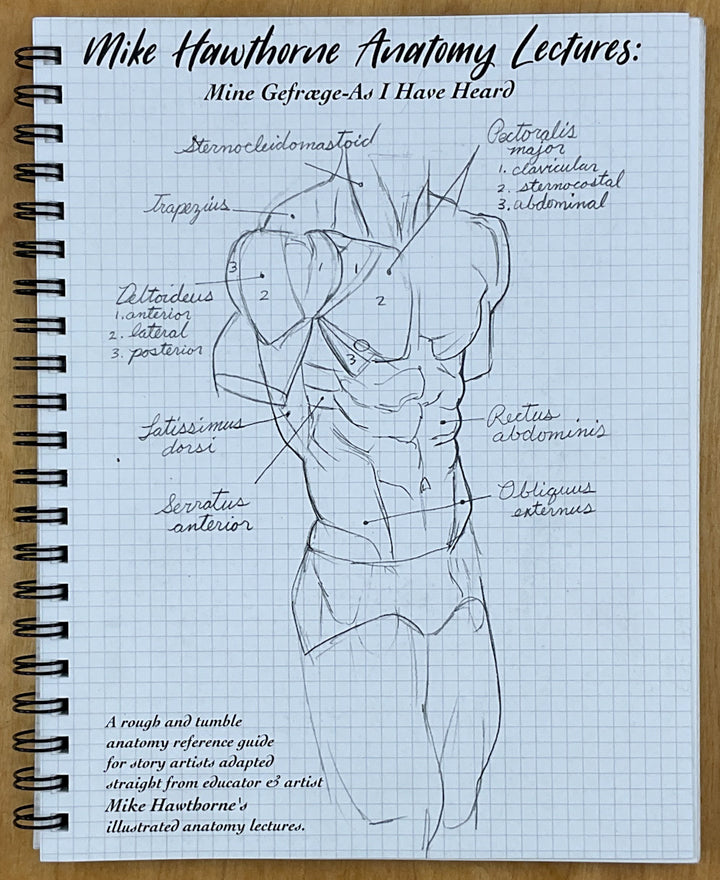 Mike Hawthorne Anatomy Lectures:
Mine Gefræge-As I Have Heard
Sternocleidomastoid
Pectoralis
major
1. clavicular
2. sternocostal
3. abdominal
Trapezius
3
2
1
1
2
3
Deltoideus
1. anterior
2. lateral
3. posterior
Latissimus
dorsi
Rectus
abdominis
Serratus
anterior
Obliquus
externus
A rough and tumble
anatomy reference guide
for story artists adapted
straight from educator & artist
Mike Hawthorne's
illustrated anatomy lectures.